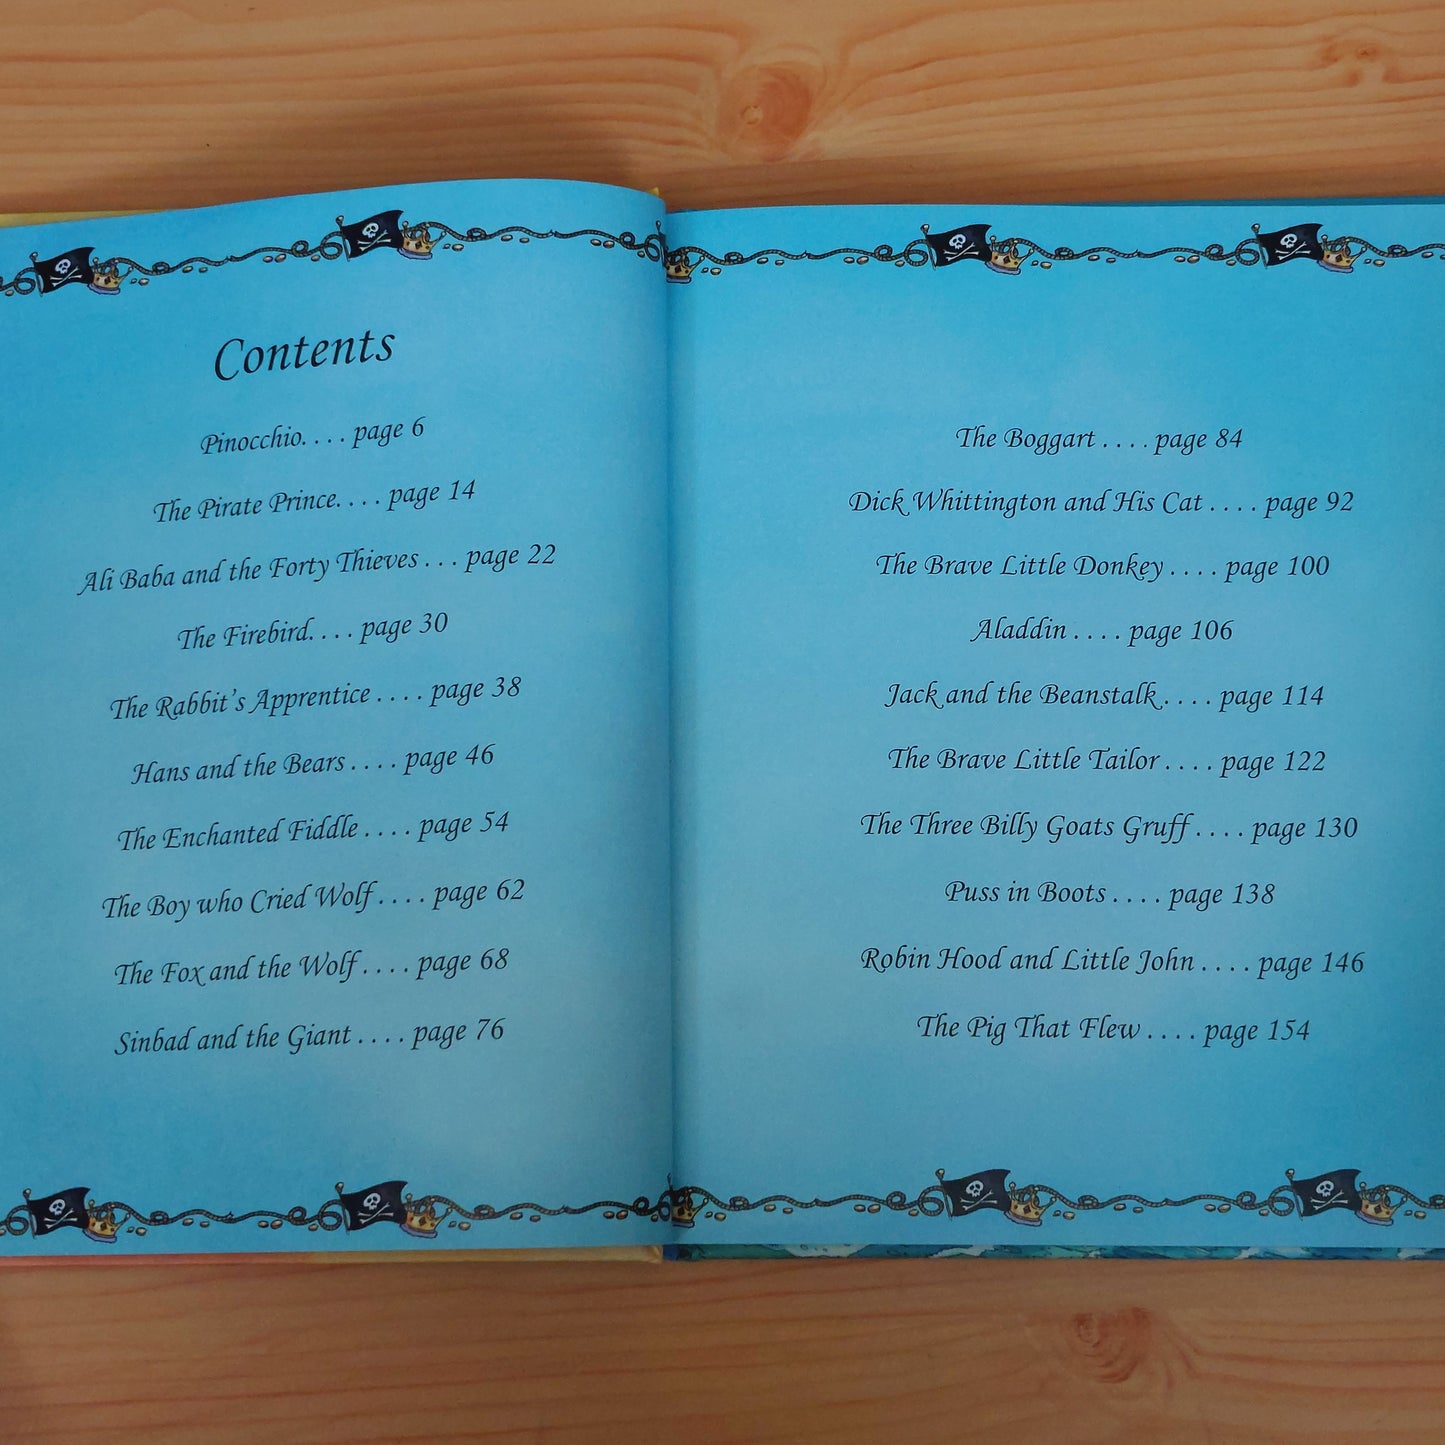 Contents
Pinocchio. . . . page 6
The Pirate Prince. . . . page 14
Ali Baba and the Forty Thieves . . . page 22
The Firebird. . . . page 30
The Rabbit's Apprentice . . . . page 38
Hans and the Bears . . . . page 46
The Enchanted Fiddle . . . . page 54
The Boy who Cried Wolf . . . . page 62
The Fox and the Wolf . . . . page 68
Sinbad and the Giant . . . . page 76
The Boggart . . . . page 84
Dick Whittington and His Cat . . . . page 92
The Brave Little Donkey . . . . page 100
Aladdin . . . . page 106
Jack and the Beanstalk . . . . page 114
The Brave Little Tailor . . . . page 122
The Three Billy Goats Gruff . . . . page 130
Puss in Boots . . . . page 138
Robin Hood and Little John . . . . page 146
The Pig That Flew . . . . page 154